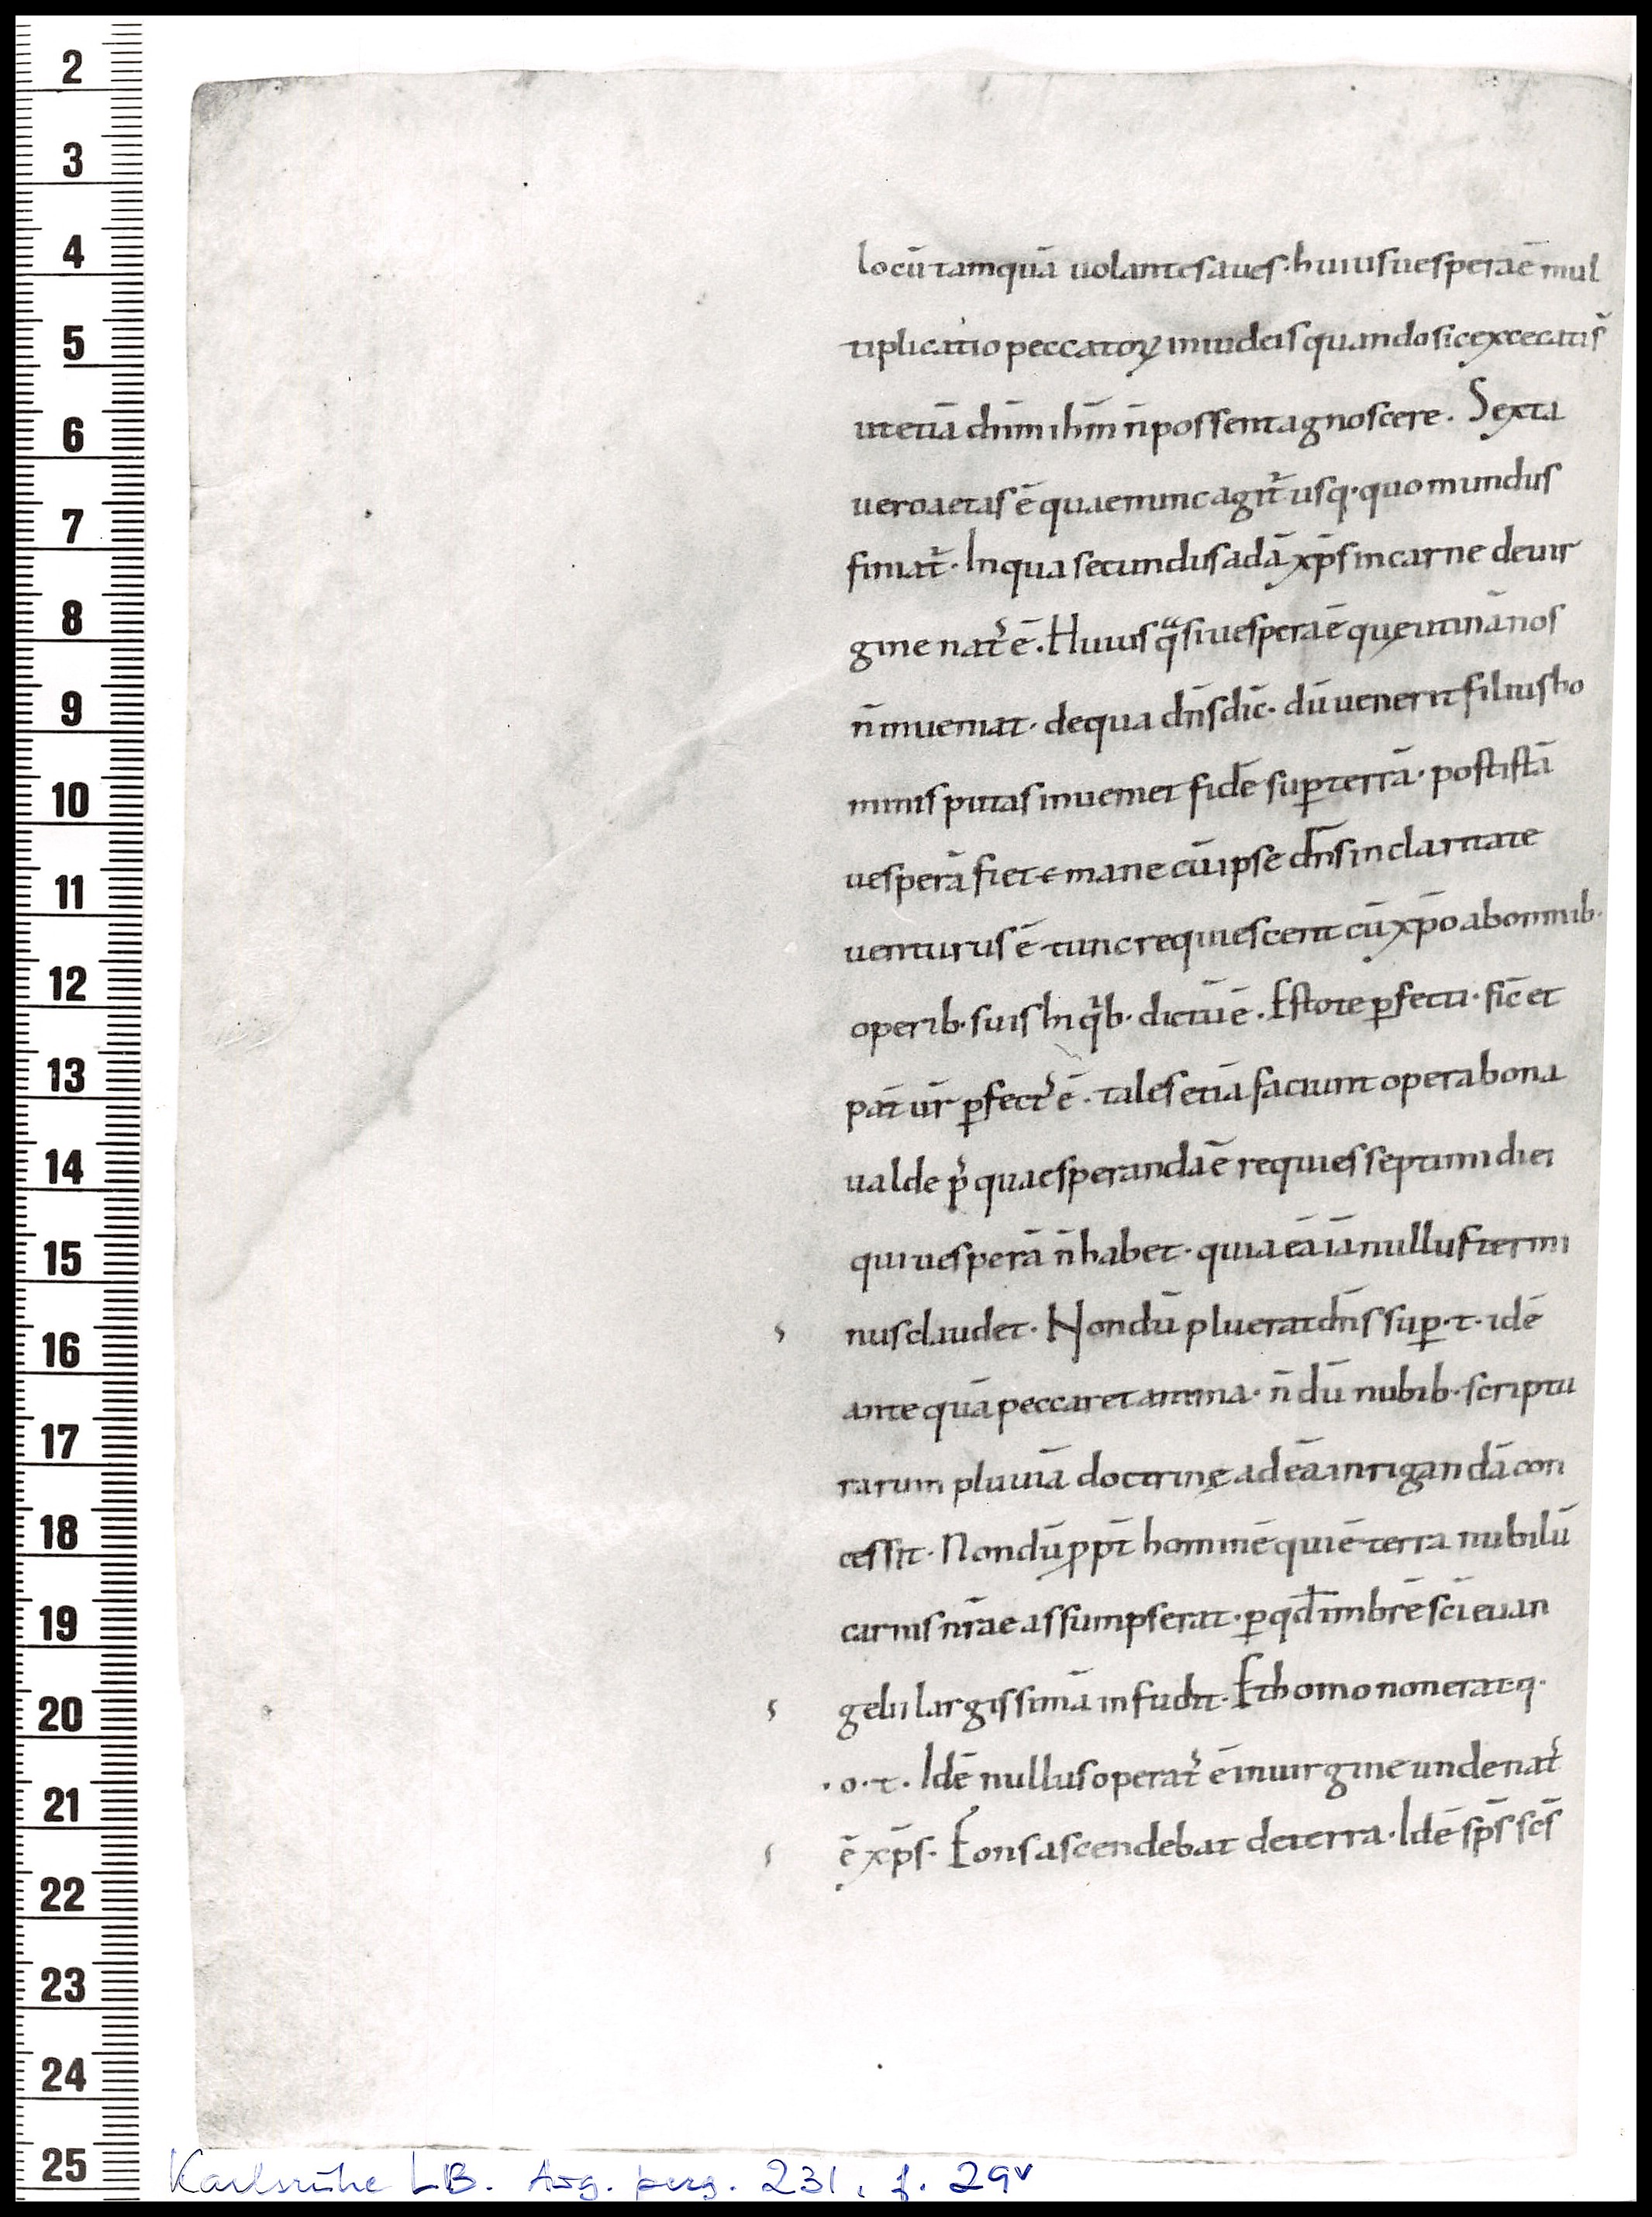 2
3
4
5
6
7
8
9
10
11
12
13
14
15
16
17
18
19
20
21
22
23
24
25
locū tamquā uolantes aues · huius uespera ē mul
tiplicatio peccatoꝝ in iudeis quando sic excecati s̄
ut etiā dn̄m ihm̄ n̄ possent agnoscere . Sexta
uero aetas ē quae nunc agit᷑ usq · quo mundus
finiat᷑ · In qua secundus adā xp̄s in carne de uir
gine natꝰ ē . Huius qͣsi uespera ē quę utinā nos
n̄ inueniat · de qua dn̄s dic̄ · dū uenerit filius ho
minis putas inueniet fidē sup terrā · post istā
uesperā fiet mane cū ipse dn̄s in claritate
uenturus ē tunc requiescent cū xp̄o ab omnib ·
operib · suis hi qⁱb · dictū ē . Estote ꝑfecti · sic̄ et
pat̄ ur̄ ꝑfectꝰ ē . tales etiā faciunt opera bona
ualde pꝰ quae speranda ē requies septimi diei
qui uesperā n̄ habet · quia eā iā nullus termi
nus claudet · Nondū pluerat dn̄s suꝑ · t · idē
ante quā peccaret anima · n̄ dū nubib · scriptu
rarum pluuiā doctrinę ad eā inrigandā con
cessit · Nondū ꝓpt̄ hominē qui ē terra nubilū
carnis nr̄ae assumpserat · ꝑ qd̄ imbrē sc̄i euan
gelii largissimā infudit · Et homo non erat q ·
· o · t · Idē nullus operatꝰ ē in uirgine unde natꝰ
ē xp̄s · Fons ascendebat de terra · Idē sp̄s sc̄s
Karlsruhe LB. Aug. perg. 231, f. 29v